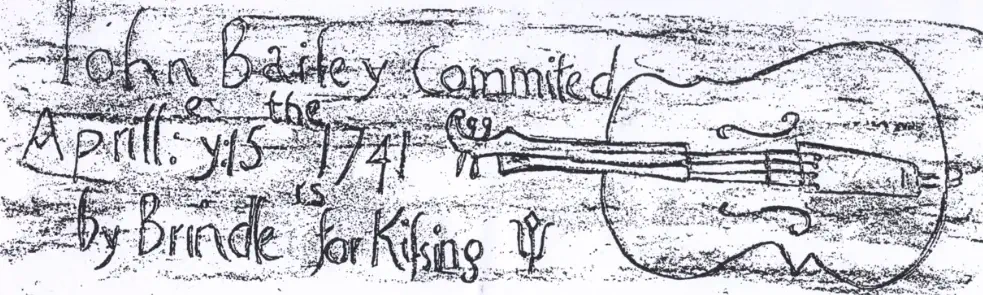 Iohn Bailey Commited
Aprill: yᵉ:15 the 1741
by Brindle is for Kiſsing